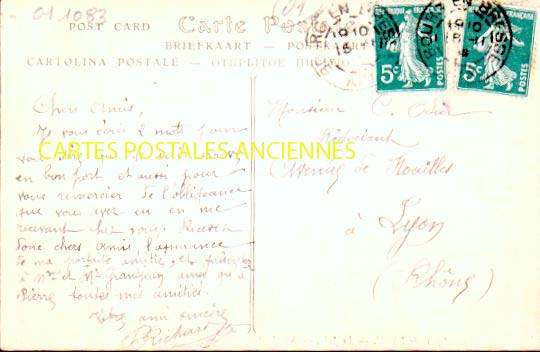 01 1083
POST CARD Carte Postale
BRIEFKAART
CARTOLINA POSTALE
5c POSTES
5c POSTES
Chers Amis,
Je vous écris 2 mots pour
vous
en bon port et aussi pour
vous remercier de l'obligeance
que vous avez eu en me
recevant chez vous. Recevez
donc chers amis l'assurance
de ma parfaite amitié, et
à Mr et Me ainsi qu'à
Pierre toutes mes amitiés.
Votre ami sincère
Richard
CARTES POSTALES ANCIENNES
Monsieur C.
Négociant
Avenue de Noailles
à Lyon
(Rhône)